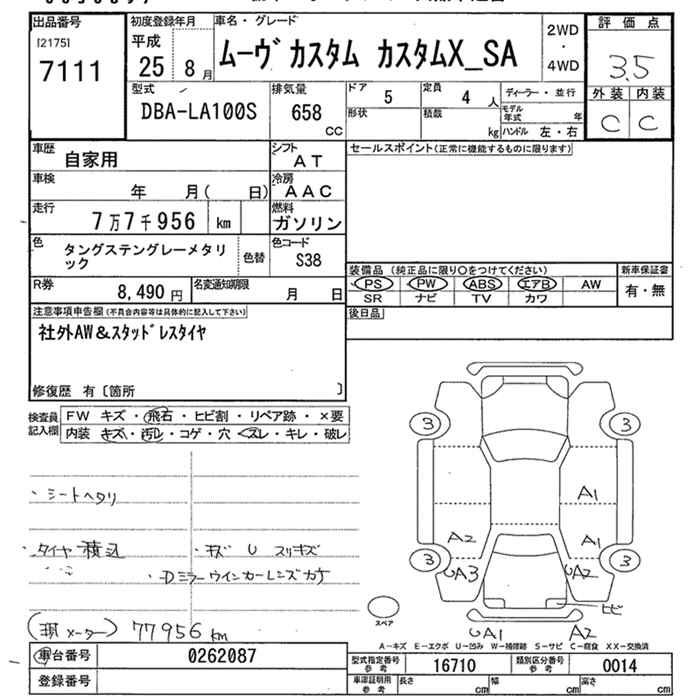 出品番号
[2175]
7111
初度登録年月
平成
25 8月
車名・グレード
ムーヴ カスタム カスタムX_SA
2WD
・
4WD
評価点
3.5
外装 内装
C C
型式
DBA-LA100S
排気量
658
CC
ドア
5
定員
4人
形状
積載
kg
ディーラー・並行
モデル年式 年
ハンドル 左・右
車歴
自家用
シフト
AT
車検
年 月( 日)
冷房
AAC
走行
7万7千956 km
燃料
ガソリン
色
タングステングレーメタリック
色替
色コード
S38
R券
8,490 円
名変通知期限
月 日
セールスポイント(正常に機能するものに限ります)
装備品 (純正品に限り○をつけてください)
PS PW ABS エアB AW
SR ナビ TV カワ
新車保証書
有・無
後日品
注意事項申告欄(不具合内容等は具体的に記入して下さい)
社外AW&スタッドレスタイヤ
修復歴 有〔箇所 〕
検査員記入欄
FW キズ・飛石・ヒビ割・リペア跡・×要
内装 キズ・汚レ・コゲ・穴・スレ・キレ・破レ
・シートヘタリ
・タイヤ積込
・キズ U スリキズ
・Dミラーウインカーレンズカケ
(現メーター) 77956km
3 3
3 3
A1
A2 A1
UA3 UA2
ヒビ
UA1 A2
スペア
A-キズ E-エクボ U-凹み W-補修跡 S-サビ C-腐食 XX-交換済
車台番号
0262087
登録番号
型式指定番号
参考
16710
類別区分番号
参考
0014
車庫証明用
参考
長さ cm 幅 cm 高さ cm